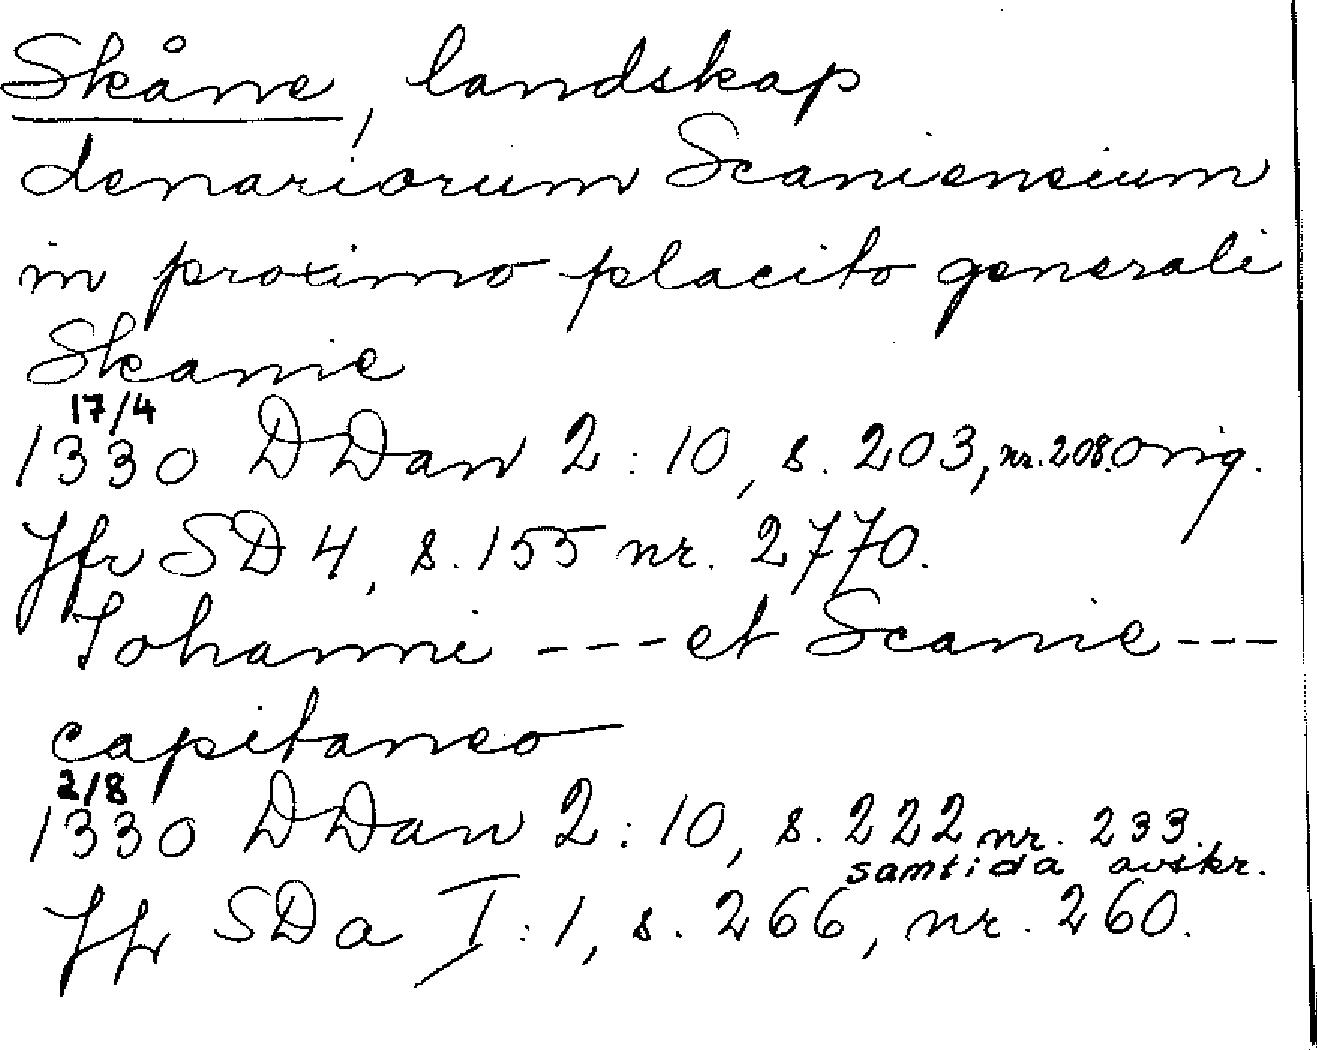 Skåne, landskap
denariorum Scaniensium
in proximo placito generali
Skanie
17/4
1330 DDan 2:10, s. 203, nr. 208. Orig.
Jfr SD 4, s. 155 nr. 2770.
Iohanni --- et Scanie ---
capitaneo
2/8
1330 DDan 2:10, s. 222 nr. 233.
samtida avskr.
Jfr SDa I:1, s. 266, nr. 260.